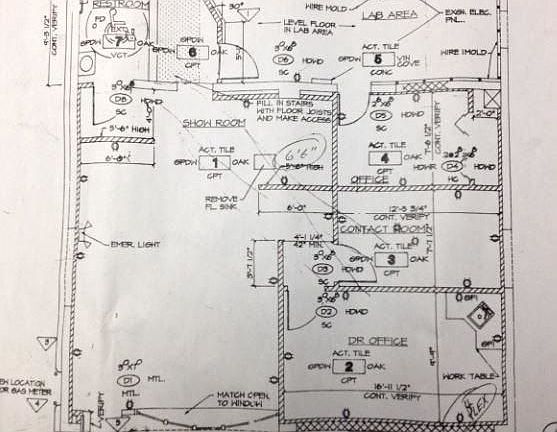 RESTROOM
FD
EXT.
GPDW 7 OAK
VCT
4'-3 1/2"
CONT. VERIFY
GPDW 6 OAK
CPT
30"
5'
WIRE MOLD
LAB AREA
LEVEL FLOOR
IN LAB AREA
EXSN. ELEC.
PNL.
WIRE MOLD
ACT. TILE
5 VIN
COVE
CONC
D6
SC
D5
HDWD
SC
5'-6" HIGH
6'-6"
FILL IN STAIRS
WITH FLOOR JOISTS
AND MAKE ACCESS
SHOW ROOM
ACT. TILE
GPDW 1 OAK
CPT
6'6"
5'-6" HIGH
REMOVE
FL. SINK
D5
HDWD
SC
ACT. TILE
4 OAK
CPT
OFFICE
7'-8 1/2"
CONT. VERIFY
2'-0"
HDWR D4 HDWD
HC
6'-0"
12'-5 3/4"
CONT. VERIFY
CONTACT ROOM
7'-1 1/2"
EMER. LIGHT
4'-1 1/4"
42" MIN.
3'-7 1/2"
D3
HDWD
SC
ACT. TILE
GPDW 3 OAK
CPT
D2
HDWD
SC
GFI
GFI
DR OFFICE
ACT. TILE
GPDW 2 OAK
CPT
9'-9"
WORK TABLE
16'-11 1/2"
CONT. VERIFY
D1
MTL.
MTL.
MATCH OPEN.
TO WINDOW
LOCATION
OR GAS METER
3
4
VERIFY
5